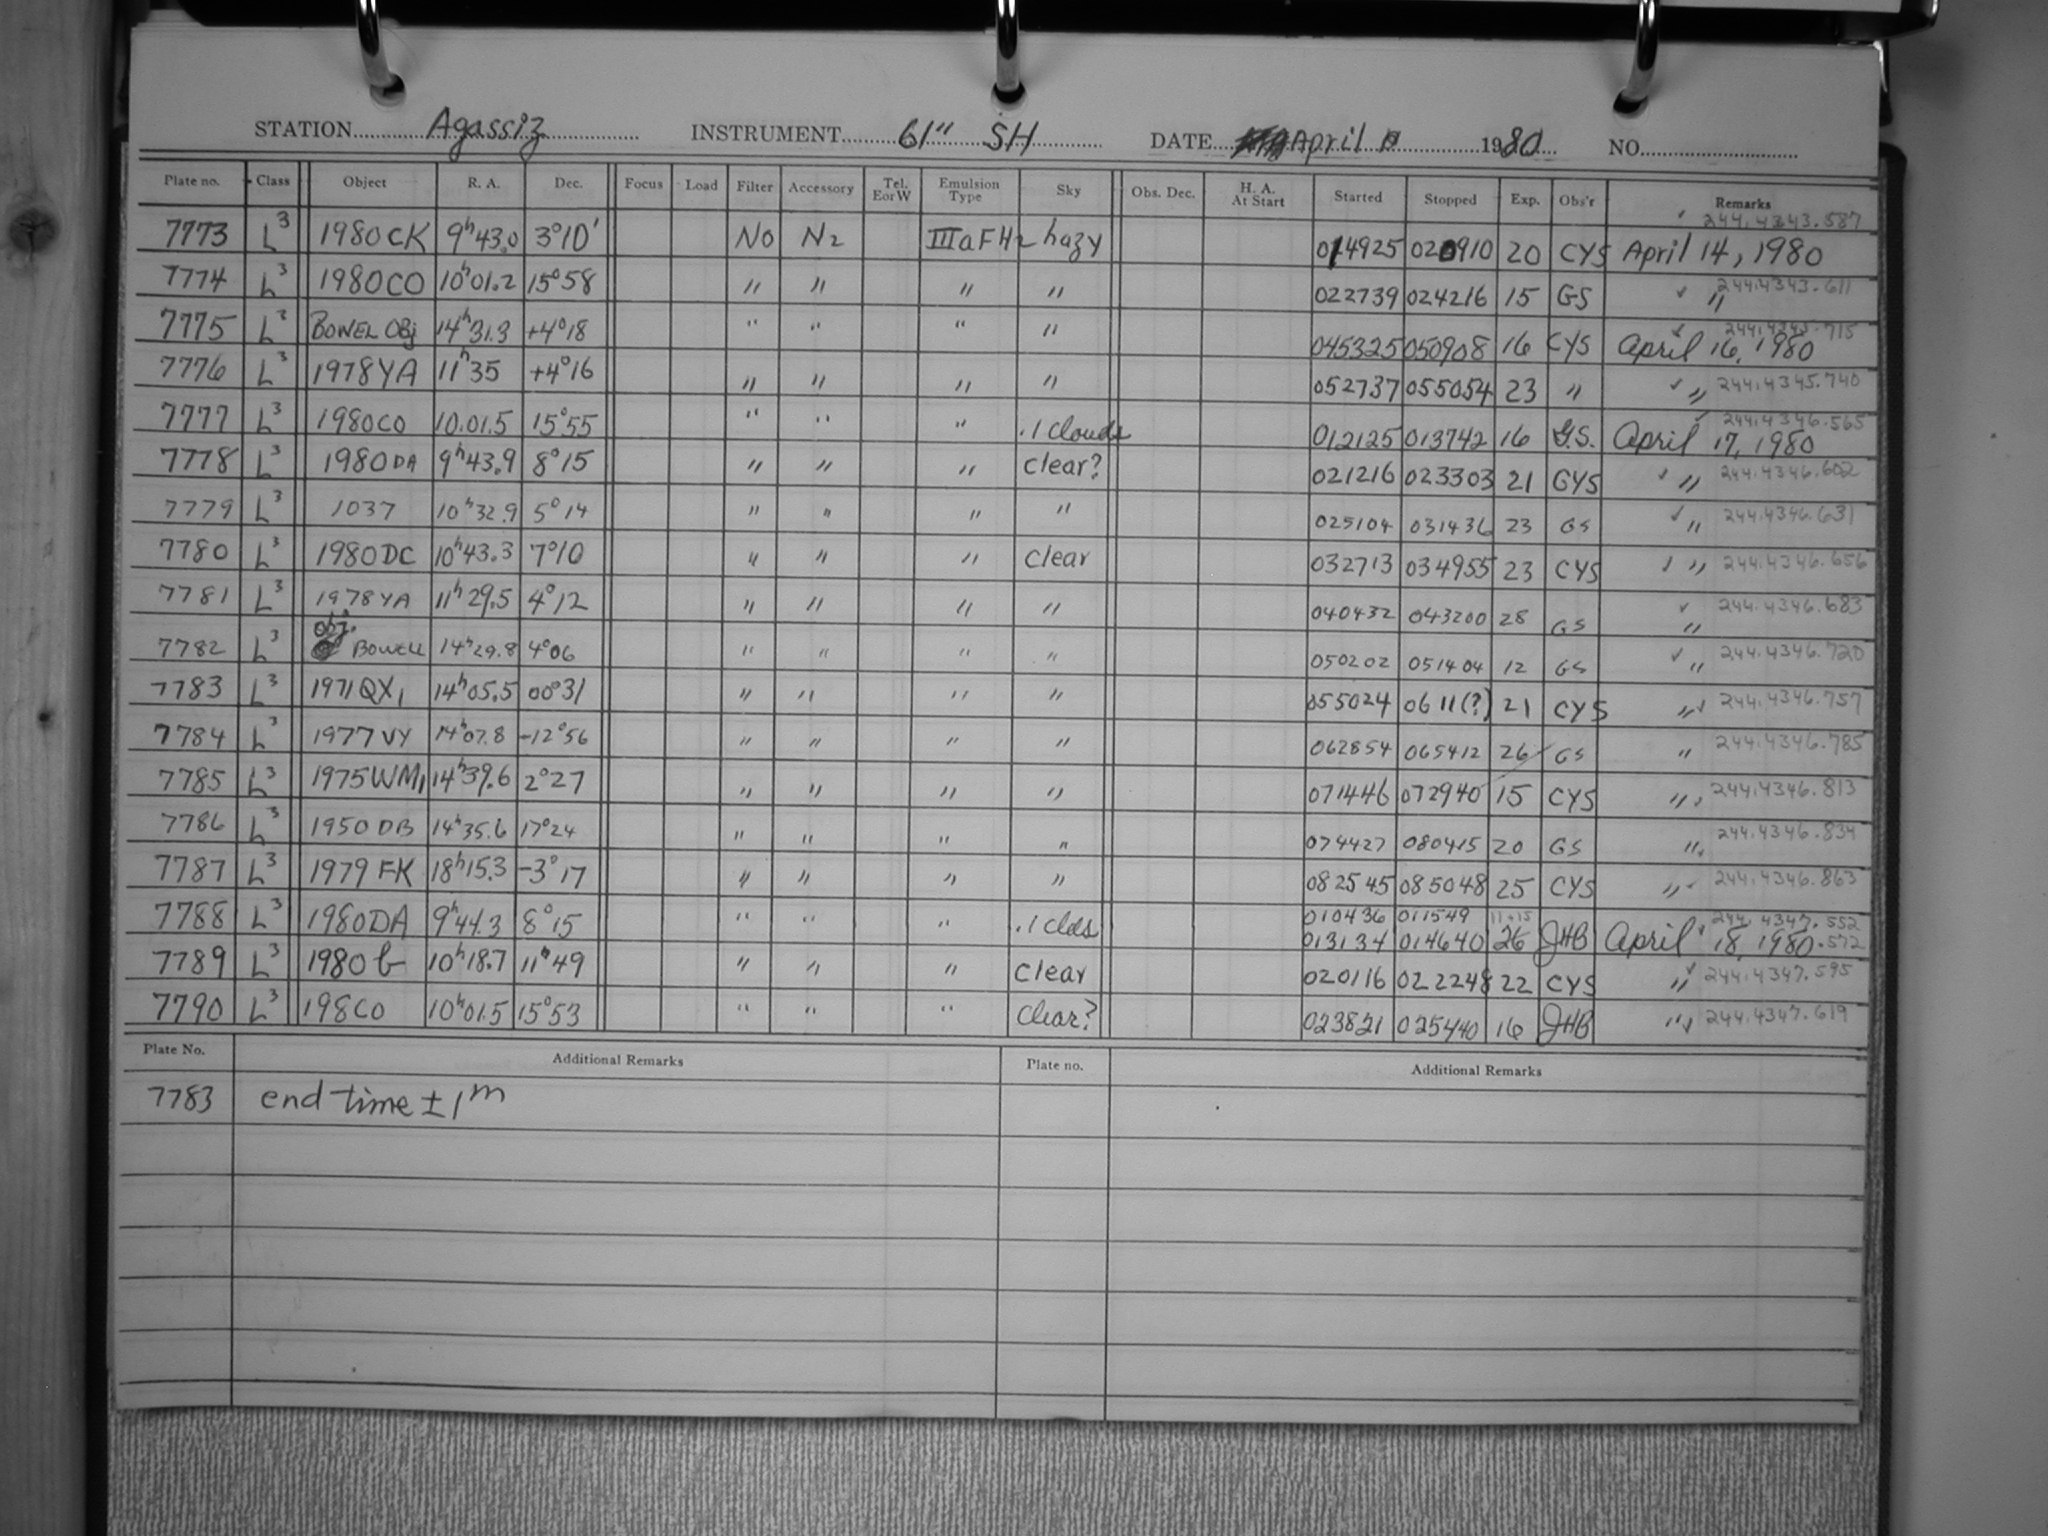 STATION Agassiz INSTRUMENT 61" SH DATE April 1980 NO.
Plate no. Class Object R. A. Dec. Focus Load Filter Accessory Tel. E or W Emulsion Type Sky Obs. Dec. H. A. At Start Started Stopped Exp. Obs'r Remarks
7773 L3 1980CK 9h43.0 3°10' NO N2 IIIaFH2 hazy 014925 020910 20 CYS April 14, 1980 244.4343.587
7774 L3 1980CO 10h01.2 15°58 " " " " 022739 024216 15 GS " 244.4343.611
7775 L3 BOWEL Obj 14h31.3 +4°18 " " " " 045325 050908 16 CYS April 16, 1980 244.4345.715
7776 L3 1978YA 11h35 +4°16 " " " " 052737 055054 23 " " 244.4345.740
7777 L3 1980CO 10.01.5 15°55 " " " .1 clouds 012125 013742 16 G.S. April 17, 1980 244.4346.565
7778 L3 1980DA 9h43.9 8°15 " " " clear? 021216 023303 21 CYS " 244.4346.602
7779 L3 1037 10h32.9 5°14 " " " " 025104 031436 23 GS " 244.4346.631
7780 L3 1980DC 10h43.3 7°10 " " " clear 032713 034955 23 CYS " 244.4346.656
7781 L3 1978YA 11h29.5 4°12 " " " " 040432 043200 28 GS " 244.4346.683
7782 L3 obj. BOWELL 14h29.8 4°06 " " " " 050202 051404 12 GS " 244.4346.720
7783 L3 1971QX1 14h05.5 00°31 " " " " 055024 0611(?) 21 CYS " 244.4346.757
7784 L3 1977VY 14h07.8 -12°56 " " " " 062854 065412 26 GS " 244.4346.785
7785 L3 1975WM1 14h39.6 2°27 " " " " 071446 072940 15 CYS " 244.4346.813
7786 L3 1950DB 14h35.6 17°24 " " " " 074427 080415 20 GS " 244.4346.834
7787 L3 1979FK 18h15.3 -3°17 " " " " 082545 085048 25 CYS " 244.4346.863
7788 L3 1980DA 9h44.3 8°15 " " " .1 clds 010436 011549 11+15 244.4347.552
013134 014640 26 JHB April 18, 1980 .572
7789 L3 1980b 10h18.7 11°49 " " " clear 020116 022248 22 CYS " 244.4347.595
7790 L3 198CO 10h01.5 15°53 " " " clear? 023821 025440 16 JHB " 244.4347.619
Plate No. Additional Remarks Plate no. Additional Remarks
7783 end time ±1m